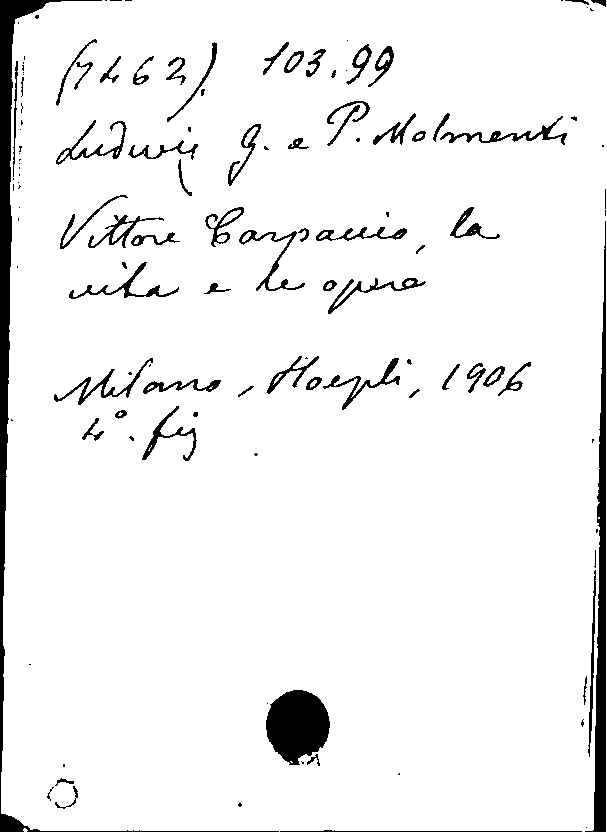 (7462). 103.99
Ludwig G. e P. Molmenti
Vittore Carpaccio, la
vita e le opere
Milano, Hoepli, 1906
4°. fig